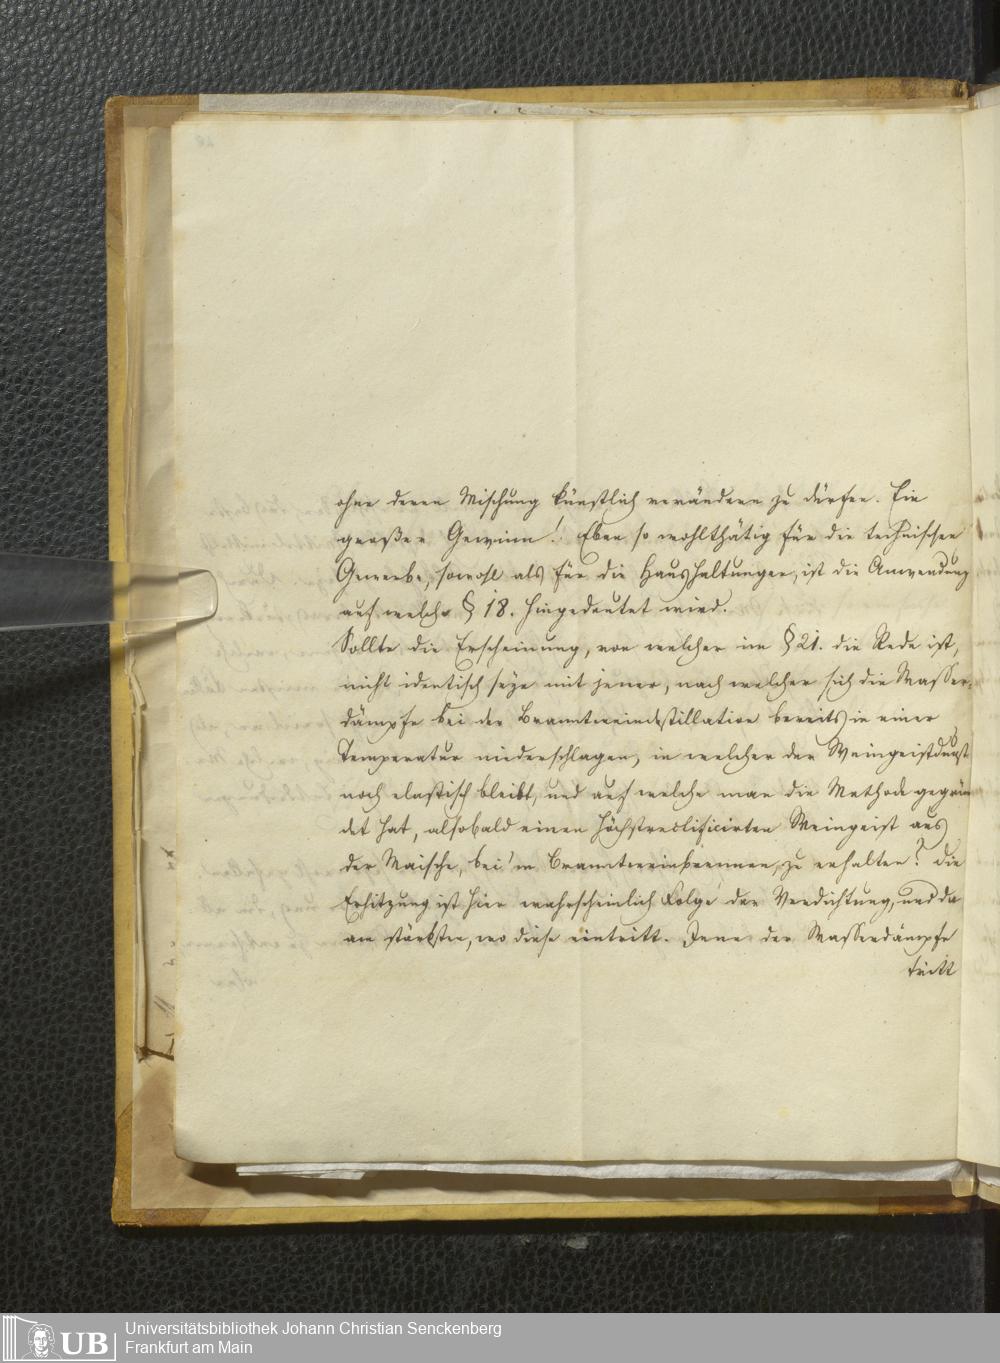 ohne deren Mischung künstlich verändern zu dürfen. Ein
großer Gewinn! Eben so wohlthätig für die technischen
Gewerbe, sowohl als für die Haushaltungen, ist die Anwendung
auf welche § 18. hingedeutet wird.
Sollte die Erscheinung, von welcher im § 21. die Rede ist,
nicht identisch seye mit jener, nach welcher sich die Wasser-
dämpfe bei der Branntweindestillation bereits in einer
Temperatur niederschlagen, in welcher der Weingeistdunst
noch elastisch bleibt, und auf welche man die Methode gegrün
det hat, alsobald einen höchstrectificirten Weingeist aus
der Maische, bei'm Branntweinbrennen, zu erhalten? die
Erhitzung ist hier wahrscheinlich Folge der Verdichtung, und da
am stärksten, wo diese eintritt. Jene der Wasserdämpfe
tritt
UB
Universitätsbibliothek Johann Christian Senckenberg
Frankfurt am Main